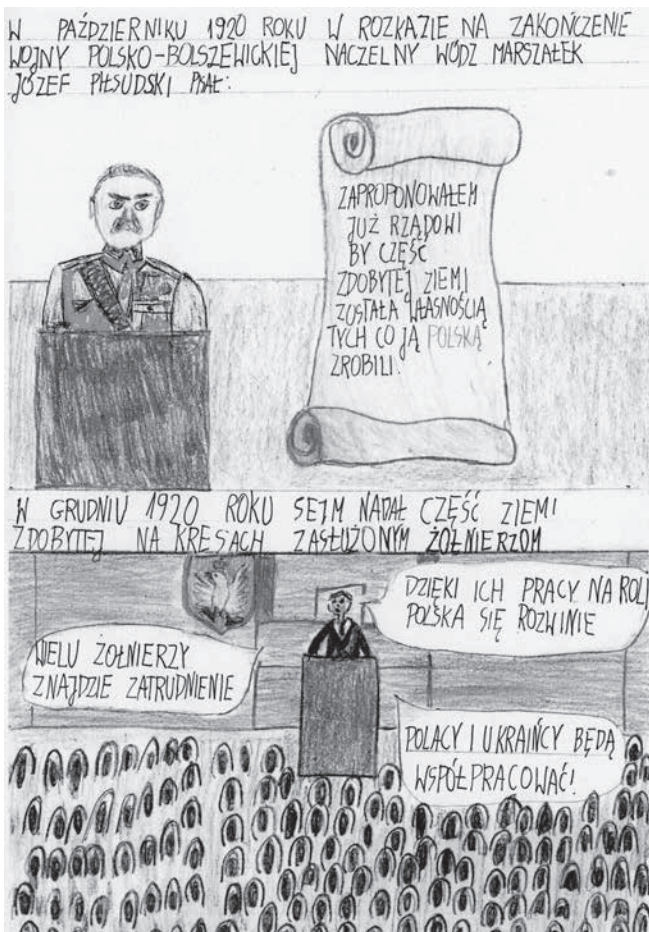 W PAŹDZIERNIKU 1920 ROKU W ROZKAZIE NA ZAKOŃCZENIE
WOJNY POLSKO-BOLSZEWICKIEJ NACZELNY WÓDZ MARSZAŁEK
JÓZEF PIŁSUDSKI PISAŁ:
ZAPROPONOWAŁEM
JUŻ RZĄDOWI
BY CZĘŚĆ
ZDOBYTEJ ZIEMI
ZOSTAŁA WŁASNOŚCIĄ
TYCH CO JĄ POLSKĄ
ZROBILI.
W GRUDNIU 1920 ROKU SEJM NADAŁ CZĘŚĆ ZIEMI
ZDOBYTEJ NA KRESACH ZASŁUŻONYM ŻOŁNIERZOM
DZIĘKI ICH PRACY NA ROLI
POLSKA SIĘ ROZWINIE
WIELU ŻOŁNIERZY
ZNAJDZIE ZATRUDNIENIE
POLACY I UKRAIŃCY BĘDĄ
WSPÓŁPRACOWAĆ!